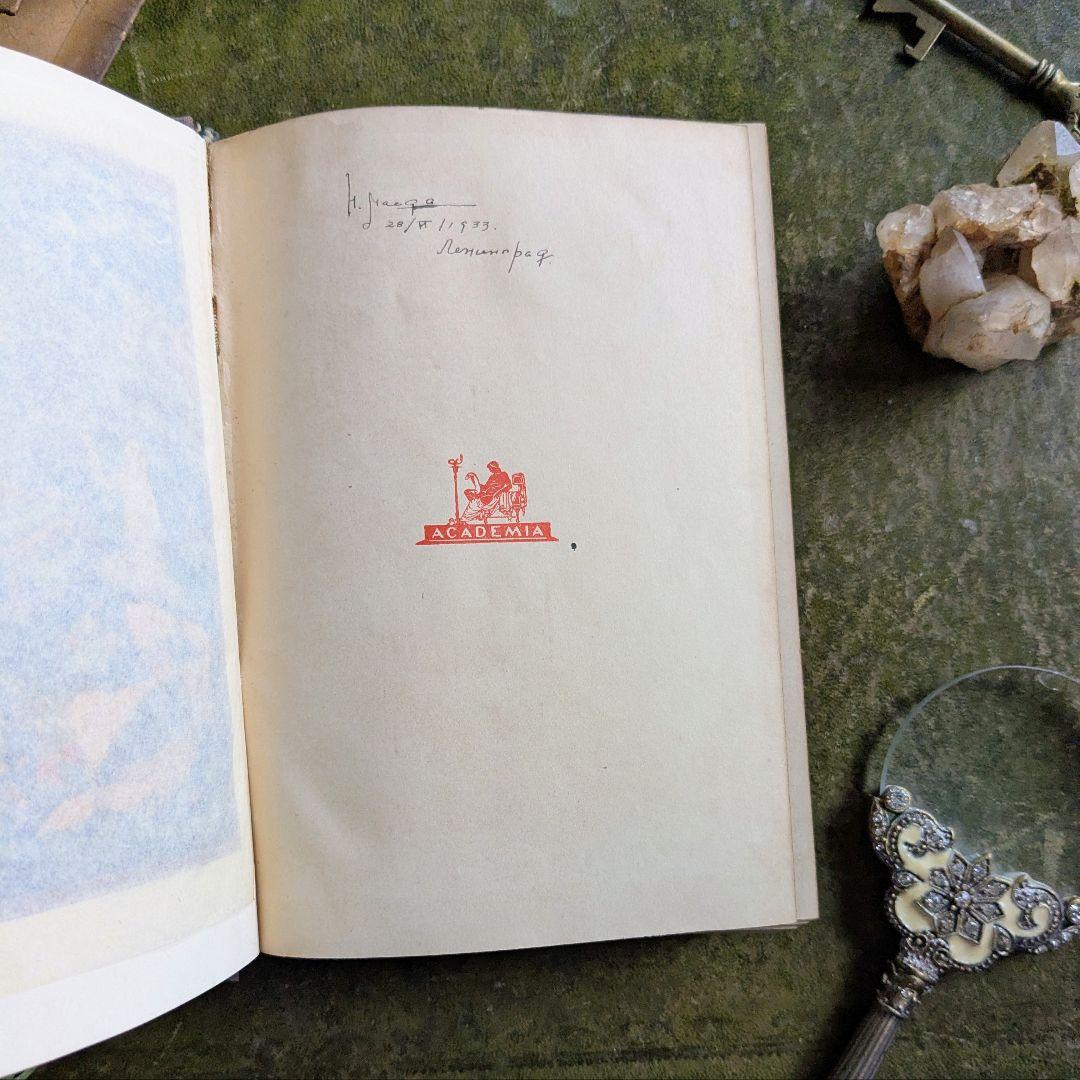 Н. Маеда
28/VI/1933.
Ленинград.
ACADEMIA